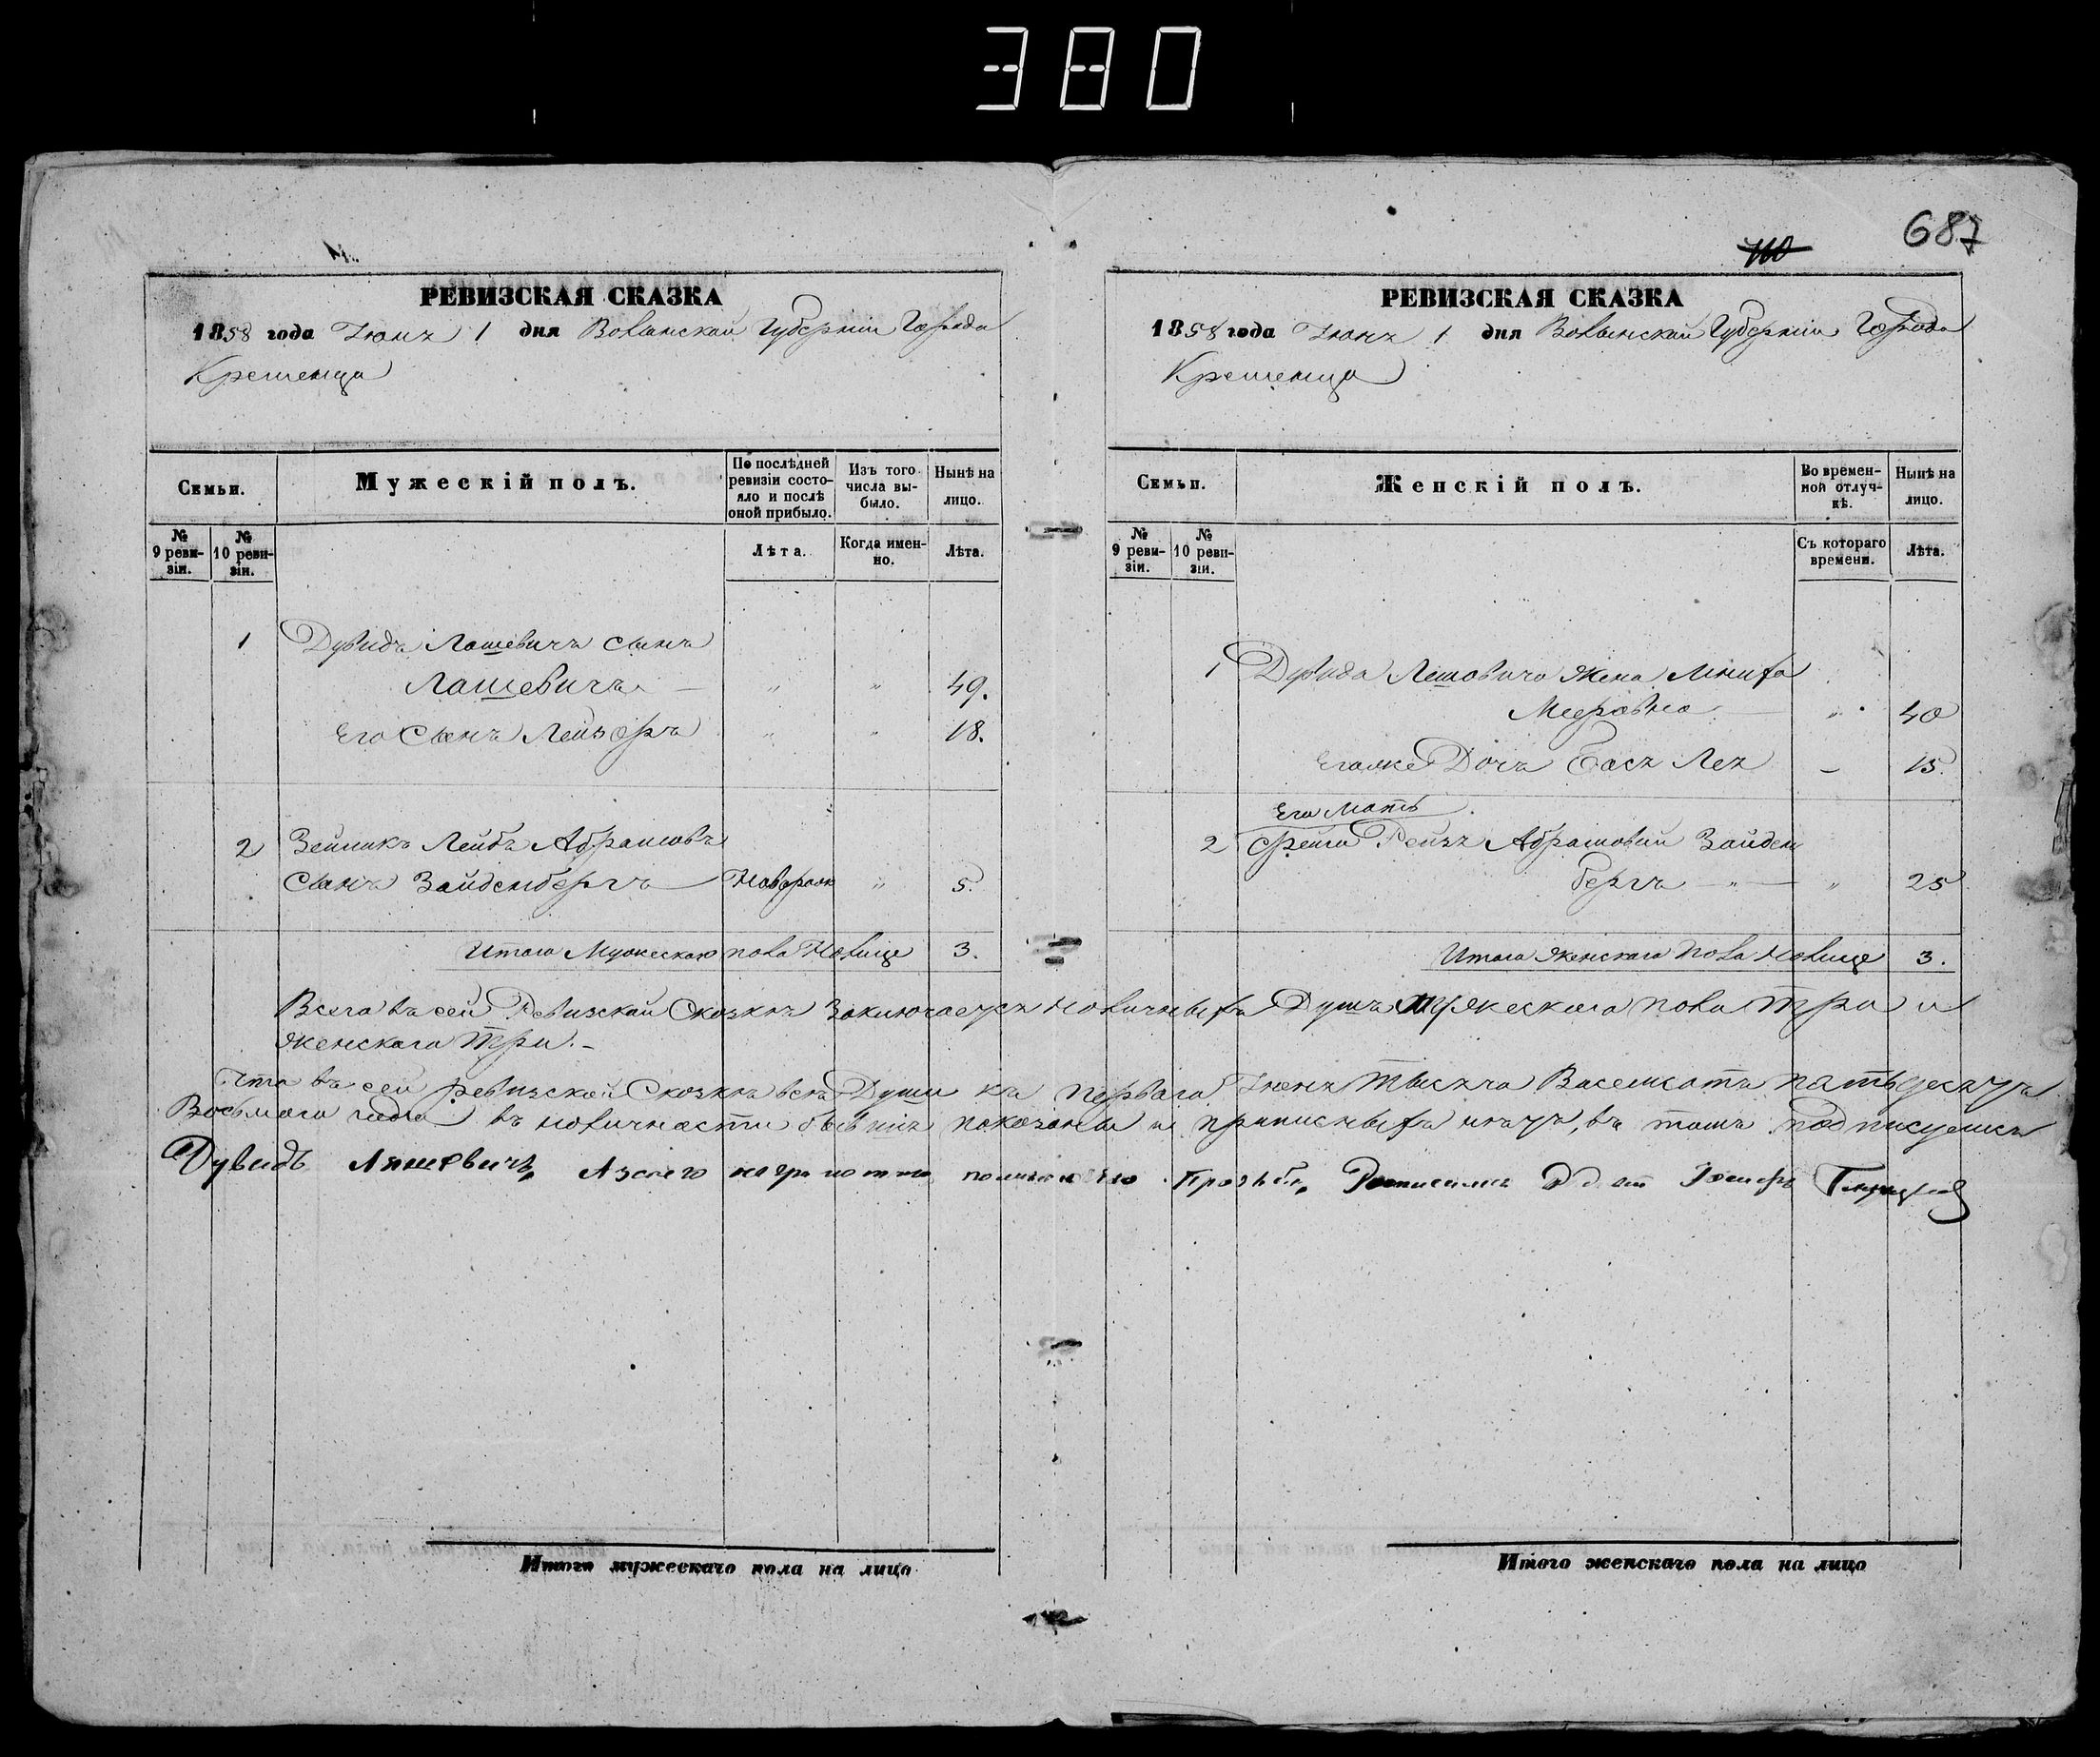 380
687
РЕВИЗСКАЯ СКАЗКА
1858 года Іюня 1 дня Волынской Губерніи Города
Кременца
Семьи.
Мужескій полъ.
По послѣдней ревизіи состояло и послѣ оной прибыло.
Изъ того числа выбыло.
Нынѣ на лицо.
№ 9 ревизіи.
№ 10 ревизіи.
Лѣта.
Когда именно.
Лѣта.
1 Дувидъ Лашевичъ сынъ
Лашевичъ — " " 49.
Его Сынъ Лейзоръ " " 18.
2 Зейликъ Лейбъ Абрамовъ
сынъ Зайденбергъ — Новорож " 5.
Итого Мужескаго пола Налице 3.
РЕВИЗСКАЯ СКАЗКА
1858 года Іюня 1 дня Волынской Губерніи Города
Кременца
Семьи.
Женскій полъ.
Во временной отлучкѣ.
Нынѣ на лицо.
№ 9 ревизіи.
№ 10 ревизіи.
Съ котораго времени.
Лѣта.
1 Дувида Лешовича Жена
Мееровна — " 40
Егоже Дочь Бася Лея — 15.
Его Мать
2 Фейга Рейзя Абрамовна Зайден
бергъ — " — " 25
Итого Женскаго пола Налице 3.
Всего въ сей Ревизской Сказкѣ Заключается наличныхъ Душъ Мужескаго пола Три и
Женскаго Три. –
Что въ сей ревизской Сказкѣ всѣ Души къ Перваго Іюня Тысяча Восемсотъ пятьдесятъ
Восьмаго года въ наличности бывшія показаны и прописныхъ нѣтъ, въ томъ подписуемся
Дувидъ Ляшевичъ, Азсего по его Прозьбѣ, Росписался
Итого мужескаго пола на лицо
Итого женскаго пола на лицо